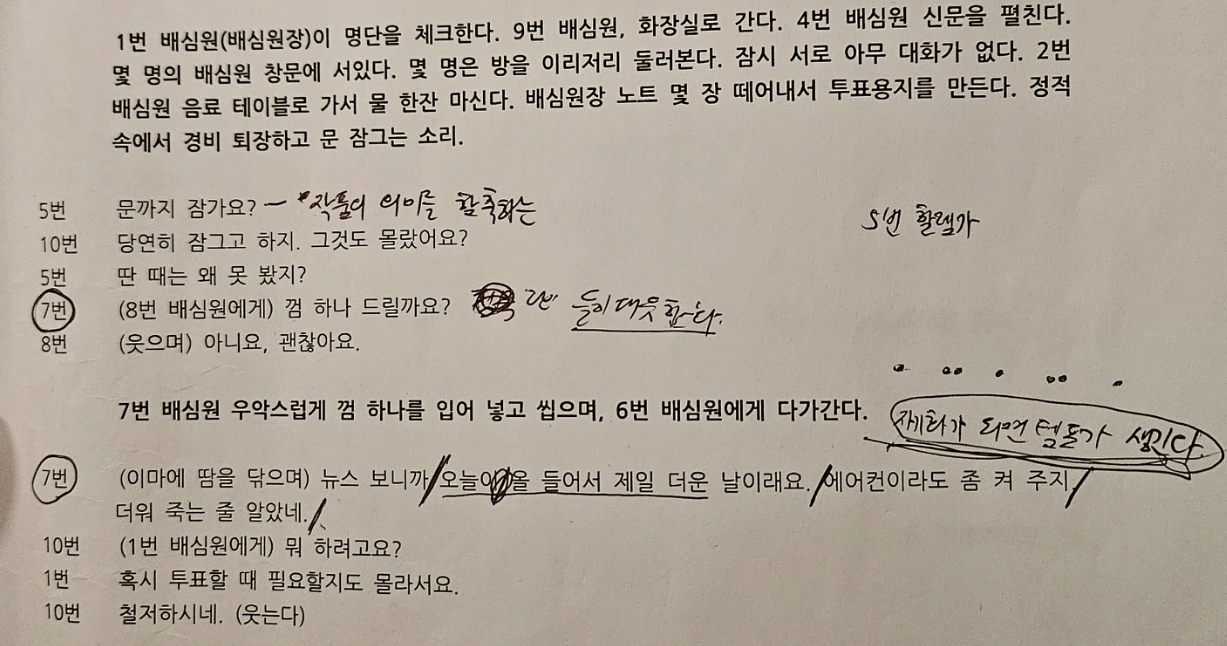 1번 배심원(배심원장)이 명단을 체크한다. 9번 배심원, 화장실로 간다. 4번 배심원 신문을 펼친다.
몇 명의 배심원 창문에 서있다. 몇 명은 방을 이리저리 둘러본다. 잠시 서로 아무 대화가 없다. 2번
배심원 음료 테이블로 가서 물 한잔 마신다. 배심원장 노트 몇 장 떼어내서 투표용지를 만든다. 정적
속에서 경비 퇴장하고 문 잠그는 소리.
5번 문까지 잠가요? — 작품의 의미를 함축하는
5번
10번 당연히 잠그고 하지. 그것도 몰랐어요?
5번 딴 때는 왜 못 봤지?
7번 (8번 배심원에게) 껌 하나 드릴까요?
8번 (웃으며) 아니요, 괜찮아요.
7번 배심원 우악스럽게 껌 하나를 입어 넣고 씹으며, 6번 배심원에게 다가간다.
체화가 되면 템포가 생긴다.
7번 (이마에 땀을 닦으며) 뉴스 보니까 오늘이 올 들어서 제일 더운 날이래요. 에어컨이라도 좀 켜 주지
더워 죽는 줄 알았네.
10번 (1번 배심원에게) 뭐 하려고요?
1번 혹시 투표할 때 필요할지도 몰라서요.
10번 철저하시네. (웃는다)